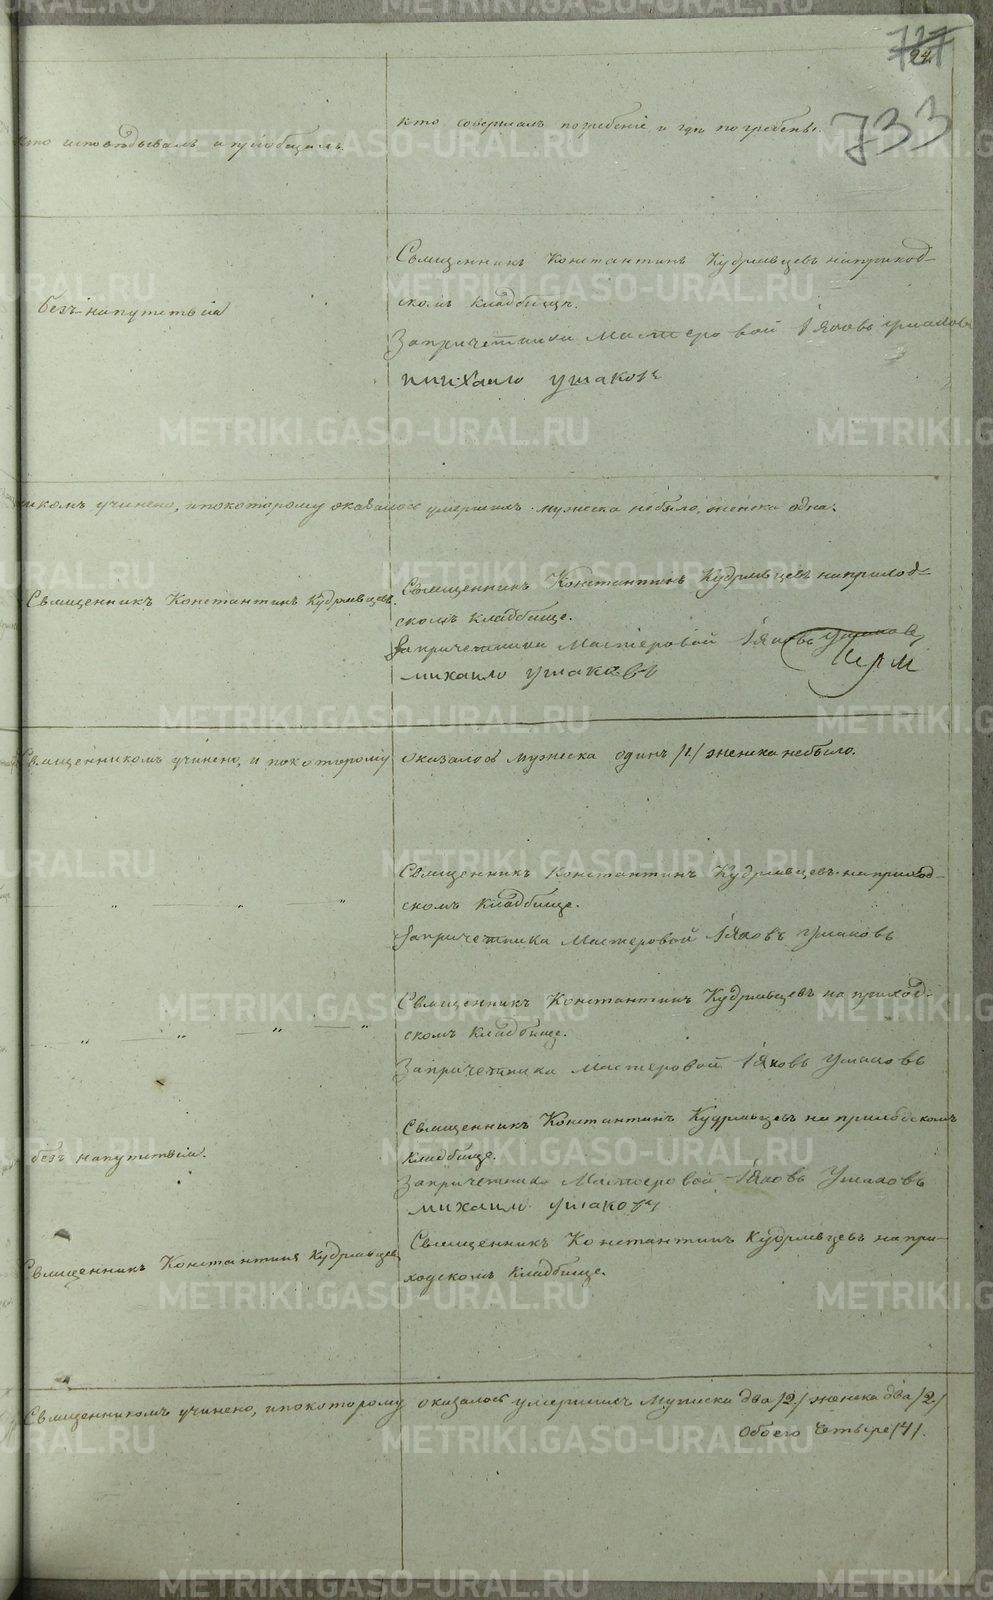 727
24.
733
Кто исповѣдывалъ и пріобщалъ.
Кто совершалъ погребеніе и гдѣ погребены.
безъ напутствія
Священникъ Константинъ Кудрявцевъ на приход-
скомъ кладбищѣ.
За причетника Мастеровой Іяковъ Ушаковъ
Михаило Ушаковъ
никомъ учинено, и по которому оказалось умершихъ мужеска небыло, женска одна.
Священникъ Константинъ Кудрявцевъ.
Священникъ Константинъ Кудрявцевъ на приход-
скомъ кладбище.
За причетника Мастеровой Іяковъ Ушаковъ
Михаило Ушаковъ
Священникомъ учинено, и по которому оказалось мужеска одинъ /1/ женска небыло.
Священникъ Константинъ Кудрявцевъ на приход-
скомъ кладбище.
За причетника Мастеровой Іяковъ Ушаковъ
Священникъ Константинъ Кудрявцевъ на приход-
скомъ кладбище.
За причетника Мастеровой Іяковъ Ушаковъ
безъ напутствія.
Священникъ Константинъ Кудрявцевъ на приходскомъ
кладбище.
За причетника Мастеровой Іяковъ Ушаковъ
Михаило Ушаковъ
Священникъ Константинъ Кудрявцевъ
Священникъ Константинъ Кудрявцевъ на при-
ходскомъ кладбище.
Священникомъ учинено, и по которому оказалось умершихъ мужеска два /2/ женска два /2/
обоего четыре /4/.
METRIKI.GASO-URAL.RU